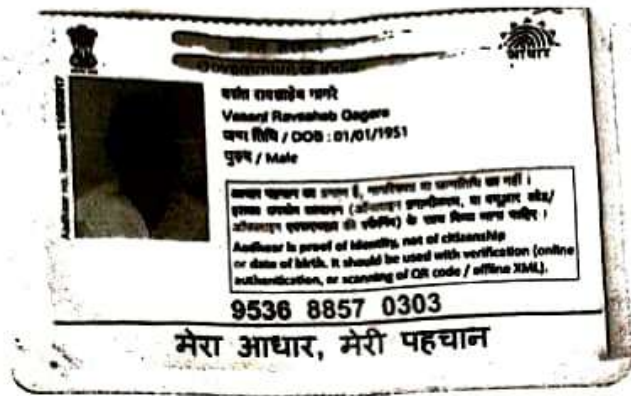 भारत सरकार
Government of India
आधार
वसंत रावसाहेब गागरे
Vasant Ravsaheb Gagare
जन्म तिथि / DOB : 01/01/1951
पुरुष / Male
आधार पहचान का प्रमाण है, नागरिकता या जन्मतिथि का नहीं ।
इसका उपयोग सत्यापन (ऑनलाइन प्रमाणीकरण, या क्यूआर कोड/
ऑफलाइन एक्सएमएल की स्कैनिंग) के साथ किया जाना चाहिए ।
Aadhaar is proof of identity, not of citizenship
or date of birth. It should be used with verification (online
authentication, or scanning of QR code / offline XML).
9536 8857 0303
मेरा आधार, मेरी पहचान